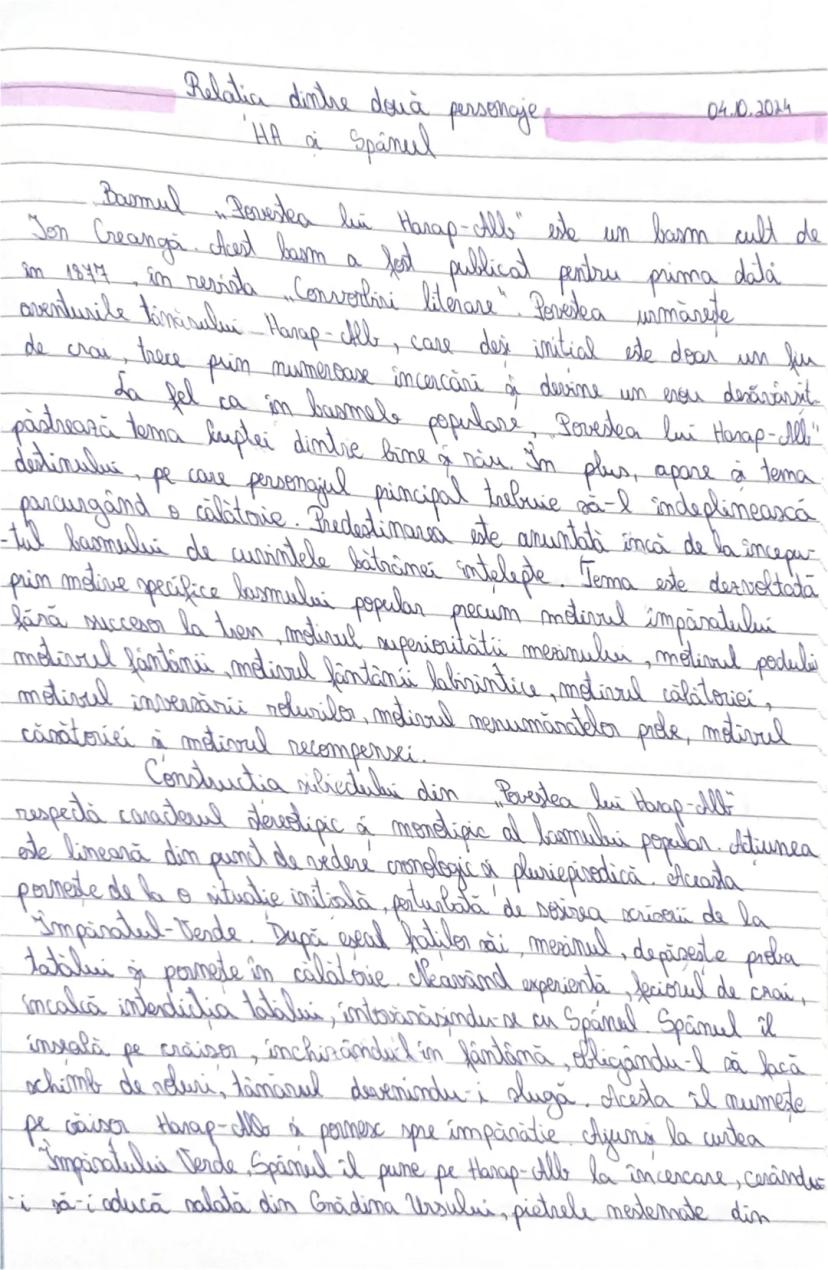 Relatia dintre două personaje
04.10.2024
HA și Spânul
Basmul „Povestea lui Harap-Alb" este un basm cult de
Ion Creangă. Acest basm a fost publicat pentru prima dată
în 1877, în revista „Convorbiri literare". Povestea urmărește
aventurile tânărului Harap-Alb, care deși initial este doar un fiu
de crai, trece prin numeroase încercări și devine un erou desăvârșit.
La fel ca în basmele populare, „Povestea lui Harap-Alb"
păstrează tema luptei dintre bine și rău. În plus, apare și tema
destinului, pe care personajul principal trebuie să-l îndeplinească
parcurgând o călătorie. Predestinarea este anuntată încă de la începu-
-tul basmului de cuvintele bătrânei întelepte. Tema este dezvoltată
prin motive specifice basmului popular precum motivul împăratului
fără succesor la tron, motivul superiorității mezinului, motivul podului
motivul fântânii, motivul fântânii labirintice, motivul călătoriei,
motivul inversării rolurilor, motivul nenumăratelor probe, motivul
căsătoriei și motivul recompensei.
Constructia subiectului din „Povestea lui Harap-Alb"
respectă caracterul stereotipic și monotipic al basmului popular. Actiunea
este lineară din punct de vedere cronologic și pluriepisodică. Aceasta
pornește de la o situatie initială, perturbată de sosirea scrisorii de la
Împăratul-Verde. După eșecul fraților săi, mezinul, depășește proba
tatălui și pornește în călătorie. Neavând experientă, feciorul de crai,
încalcă interdicția tatălui, întovărășindu-se cu Spânul. Spânul îl
înșală pe crăișor, închizându-l în fântână, obligându-l să facă
schimb de roluri, tânărul devenindu-i slugă. Acesta îl numește
pe crăișor Harap-Alb și pornesc spre împărătie. Ajunși la curtea
Împăratului Verde, Spânul îl pune pe Harap-Alb la încercare, cerându-
-i să-i aducă salată din Grădina Ursului, pietrele nestemate din